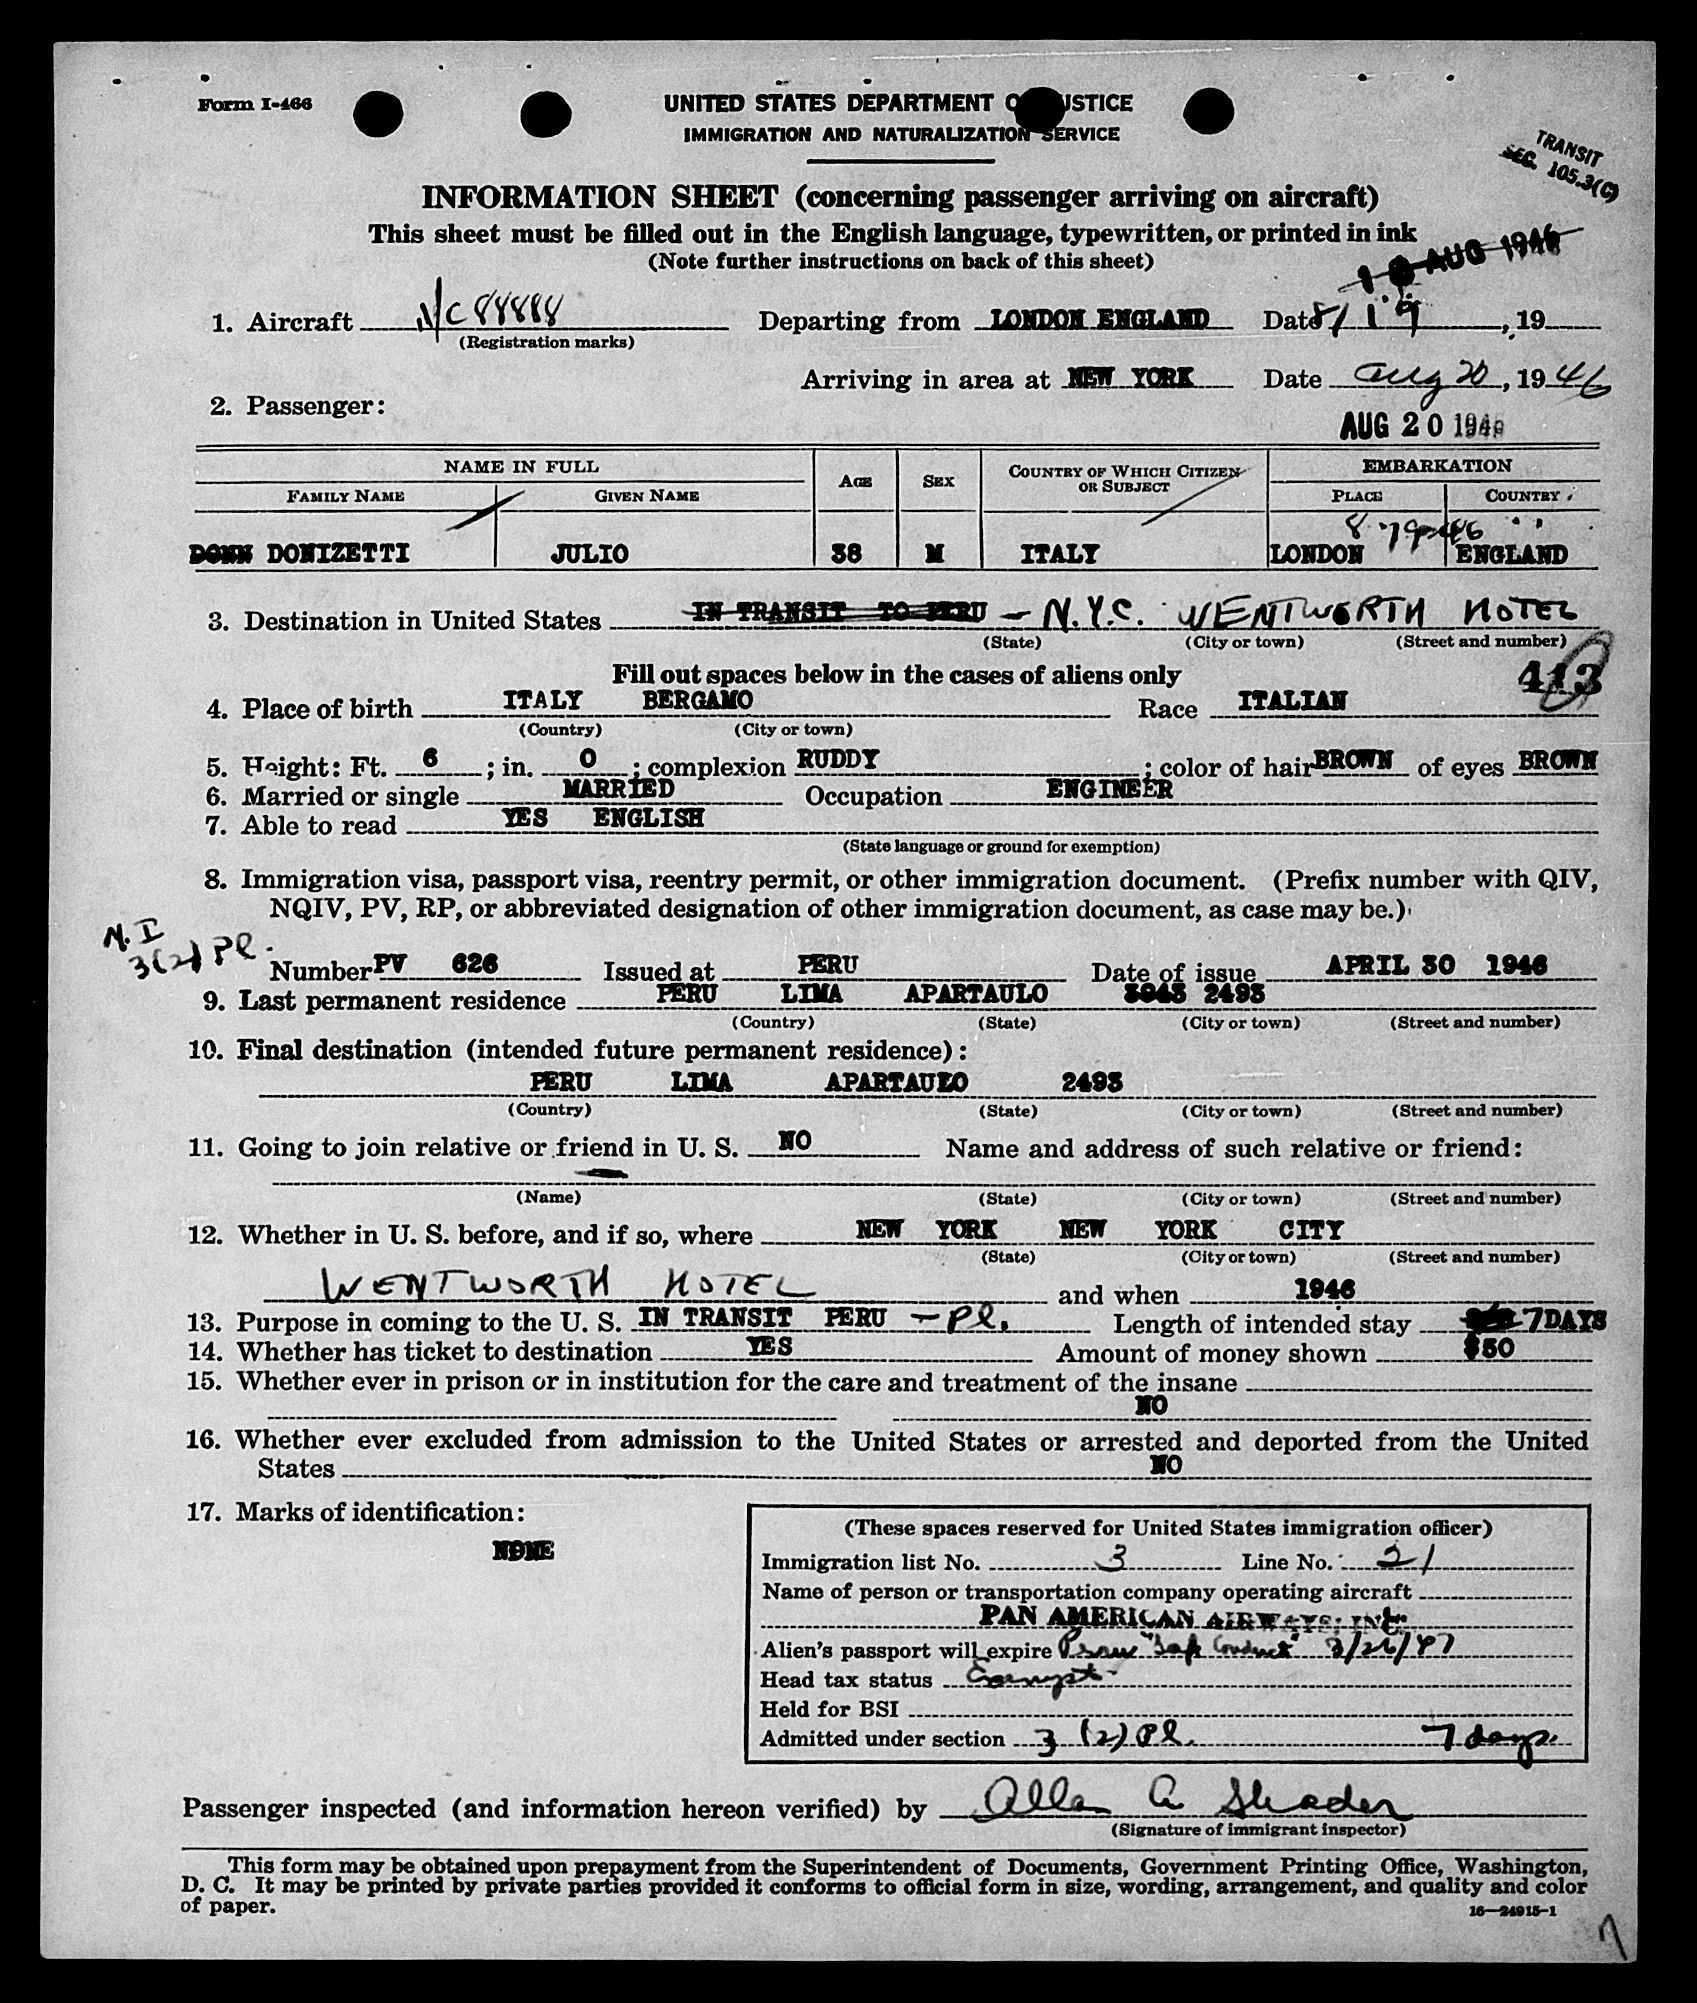 Form I-466
UNITED STATES DEPARTMENT OF JUSTICE
IMMIGRATION AND NATURALIZATION SERVICE
TRANSIT
SEC. 105.3(C)
INFORMATION SHEET (concerning passenger arriving on aircraft)
This sheet must be filled out in the English language, typewritten, or printed in ink
(Note further instructions on back of this sheet)
AUG 1946
1. Aircraft NC 88888 Departing from LONDON ENGLAND Date 8/19, 19
(Registration marks)
Arriving in area at NEW YORK Date Aug 20, 1946
2. Passenger:
AUG 20 1946
NAME IN FULL EMBARKATION
FAMILY NAME GIVEN NAME AGE SEX COUNTRY OF WHICH CITIZEN OR SUBJECT PLACE COUNTRY
8-19-46
DONIZETTI JULIO 38 M ITALY LONDON ENGLAND
3. Destination in United States IN TRANSIT TO PERU - N.Y.C. WENTWORTH HOTEL
(State) (City or town) (Street and number)
Fill out spaces below in the cases of aliens only 413
4. Place of birth ITALY BERGAMO Race ITALIAN
(Country) (City or town)
5. Height: Ft. 6; in. 0; complexion RUDDY; color of hair BROWN of eyes BROWN
6. Married or single MARRIED Occupation ENGINEER
7. Able to read YES ENGLISH
(State language or ground for exemption)
8. Immigration visa, passport visa, reentry permit, or other immigration document. (Prefix number with QIV,
NQIV, PV, RP, or abbreviated designation of other immigration document, as case may be.)
N.I
3(2) Pl.
Number PV 626 Issued at PERU Date of issue APRIL 30 1946
9. Last permanent residence PERU LIMA APARTAULO 2493
(Country) (State) (City or town) (Street and number)
10. Final destination (intended future permanent residence):
PERU LIMA APARTAULO 2493
(Country) (State) (City or town) (Street and number)
11. Going to join relative or friend in U. S. NO Name and address of such relative or friend:
(Name) (State) (City or town) (Street and number)
12. Whether in U. S. before, and if so, where NEW YORK NEW YORK CITY
(State) (City or town) (Street and number)
WENTWORTH HOTEL and when 1946
13. Purpose in coming to the U. S. IN TRANSIT PERU - Pl. Length of intended stay 7 DAYS
14. Whether has ticket to destination YES Amount of money shown $50
15. Whether ever in prison or in institution for the care and treatment of the insane
NO
16. Whether ever excluded from admission to the United States or arrested and deported from the United
States NO
17. Marks of identification:
NONE
(These spaces reserved for United States immigration officer)
Immigration list No. 3 Line No. 21
Name of person or transportation company operating aircraft
PAN AMERICAN AIRWAYS, INC.
Alien's passport will expire Peru "Safe Conduct" 3/26/47
Head tax status Exempt
Held for BSI
Admitted under section 3 (2) Pl. 7 days.
Passenger inspected (and information hereon verified) by Allan A Shader
(Signature of immigrant inspector)
This form may be obtained upon prepayment from the Superintendent of Documents, Government Printing Office, Washington,
D. C. It may be printed by private parties provided it conforms to official form in size, wording, arrangement, and quality and color
of paper.
16—24915-1